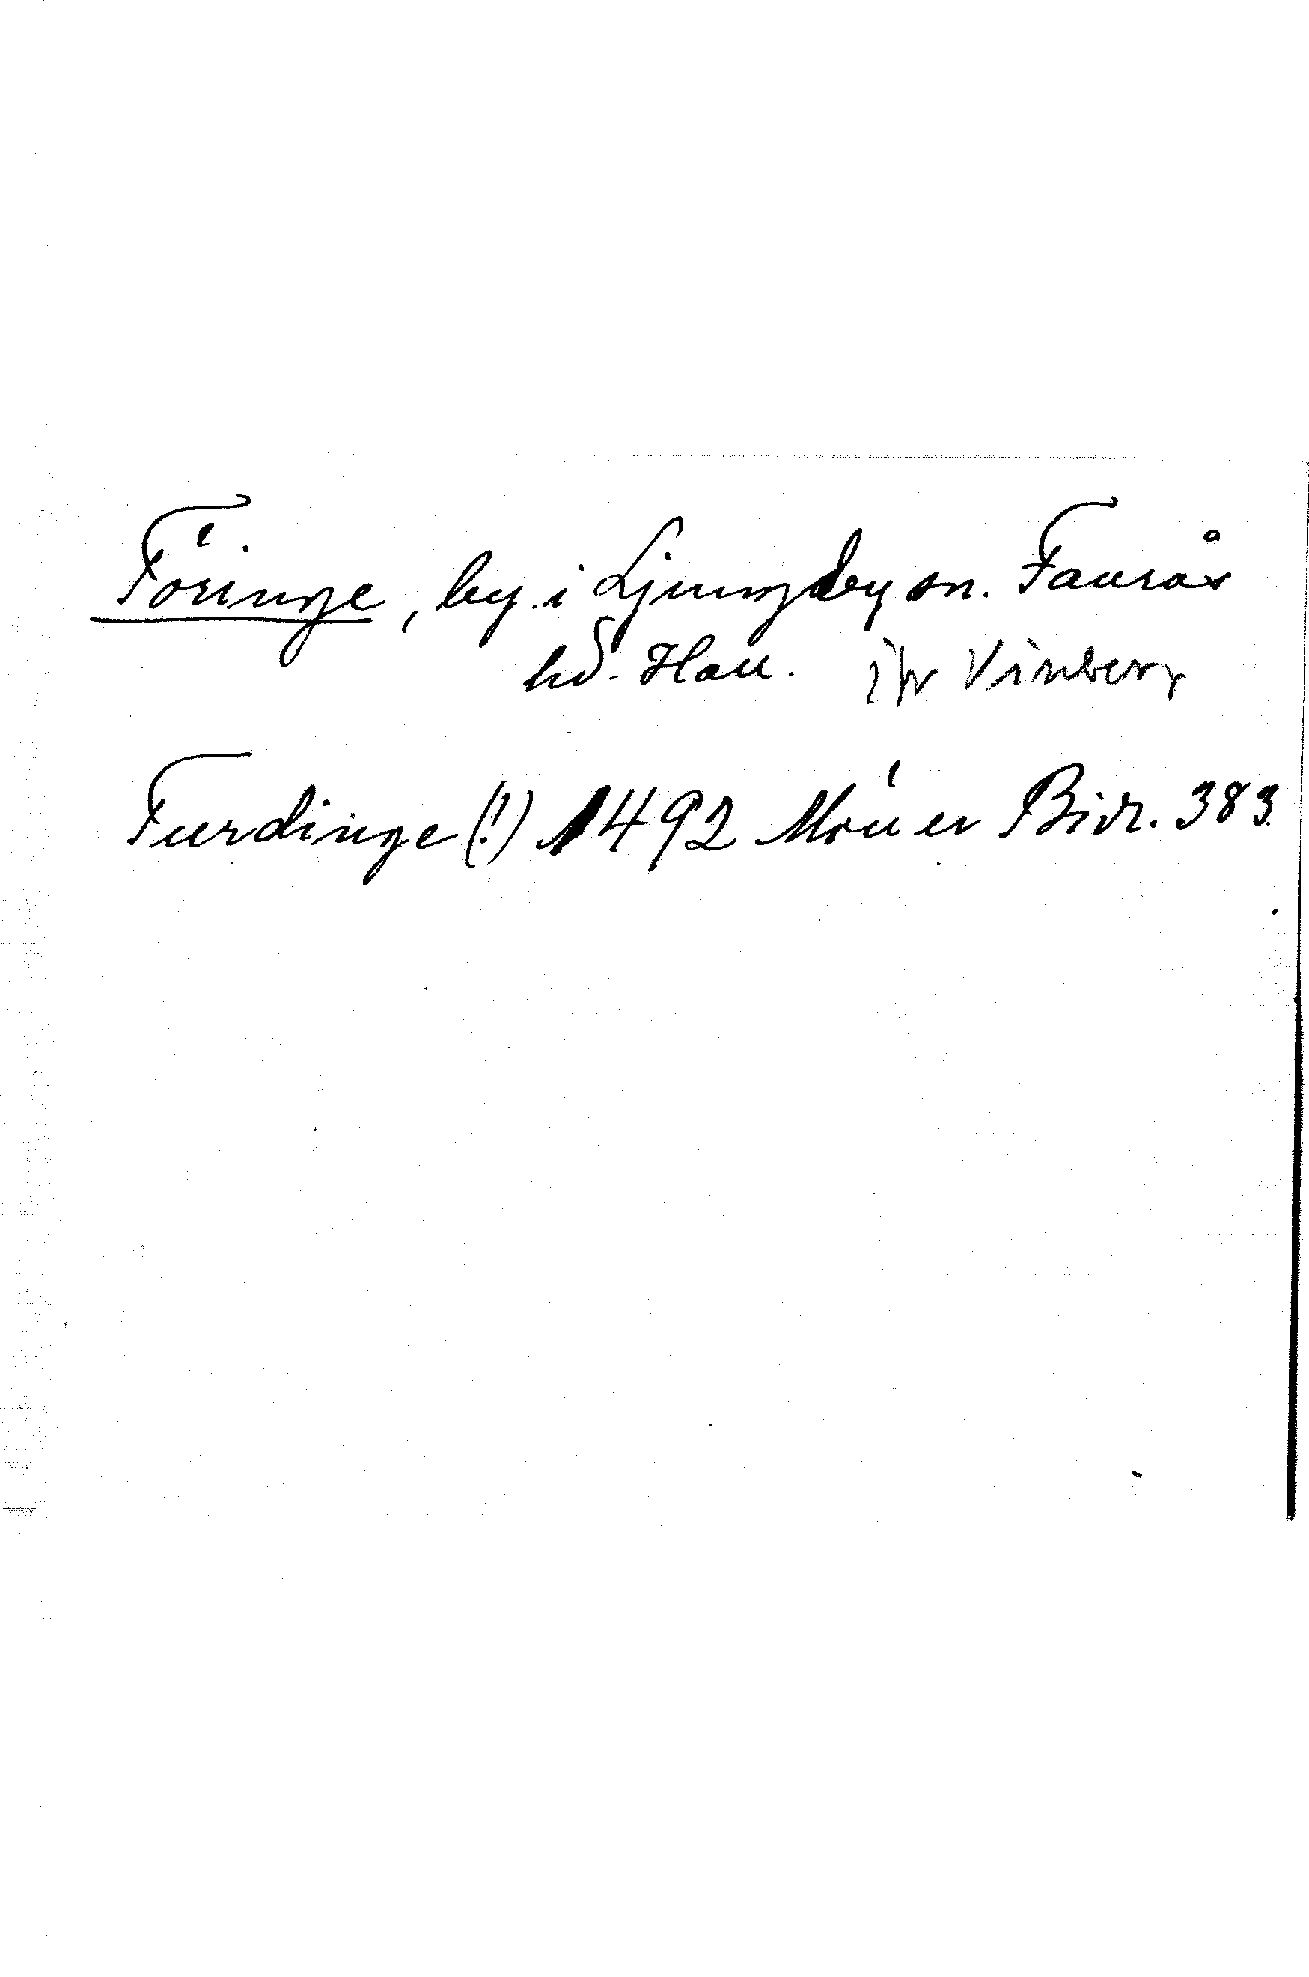 Föringe, by i Ljungby sn. Faurås
hd. Hall. jfr Vinberg
Furdinge (!) 1492 Monér Bidr. 383